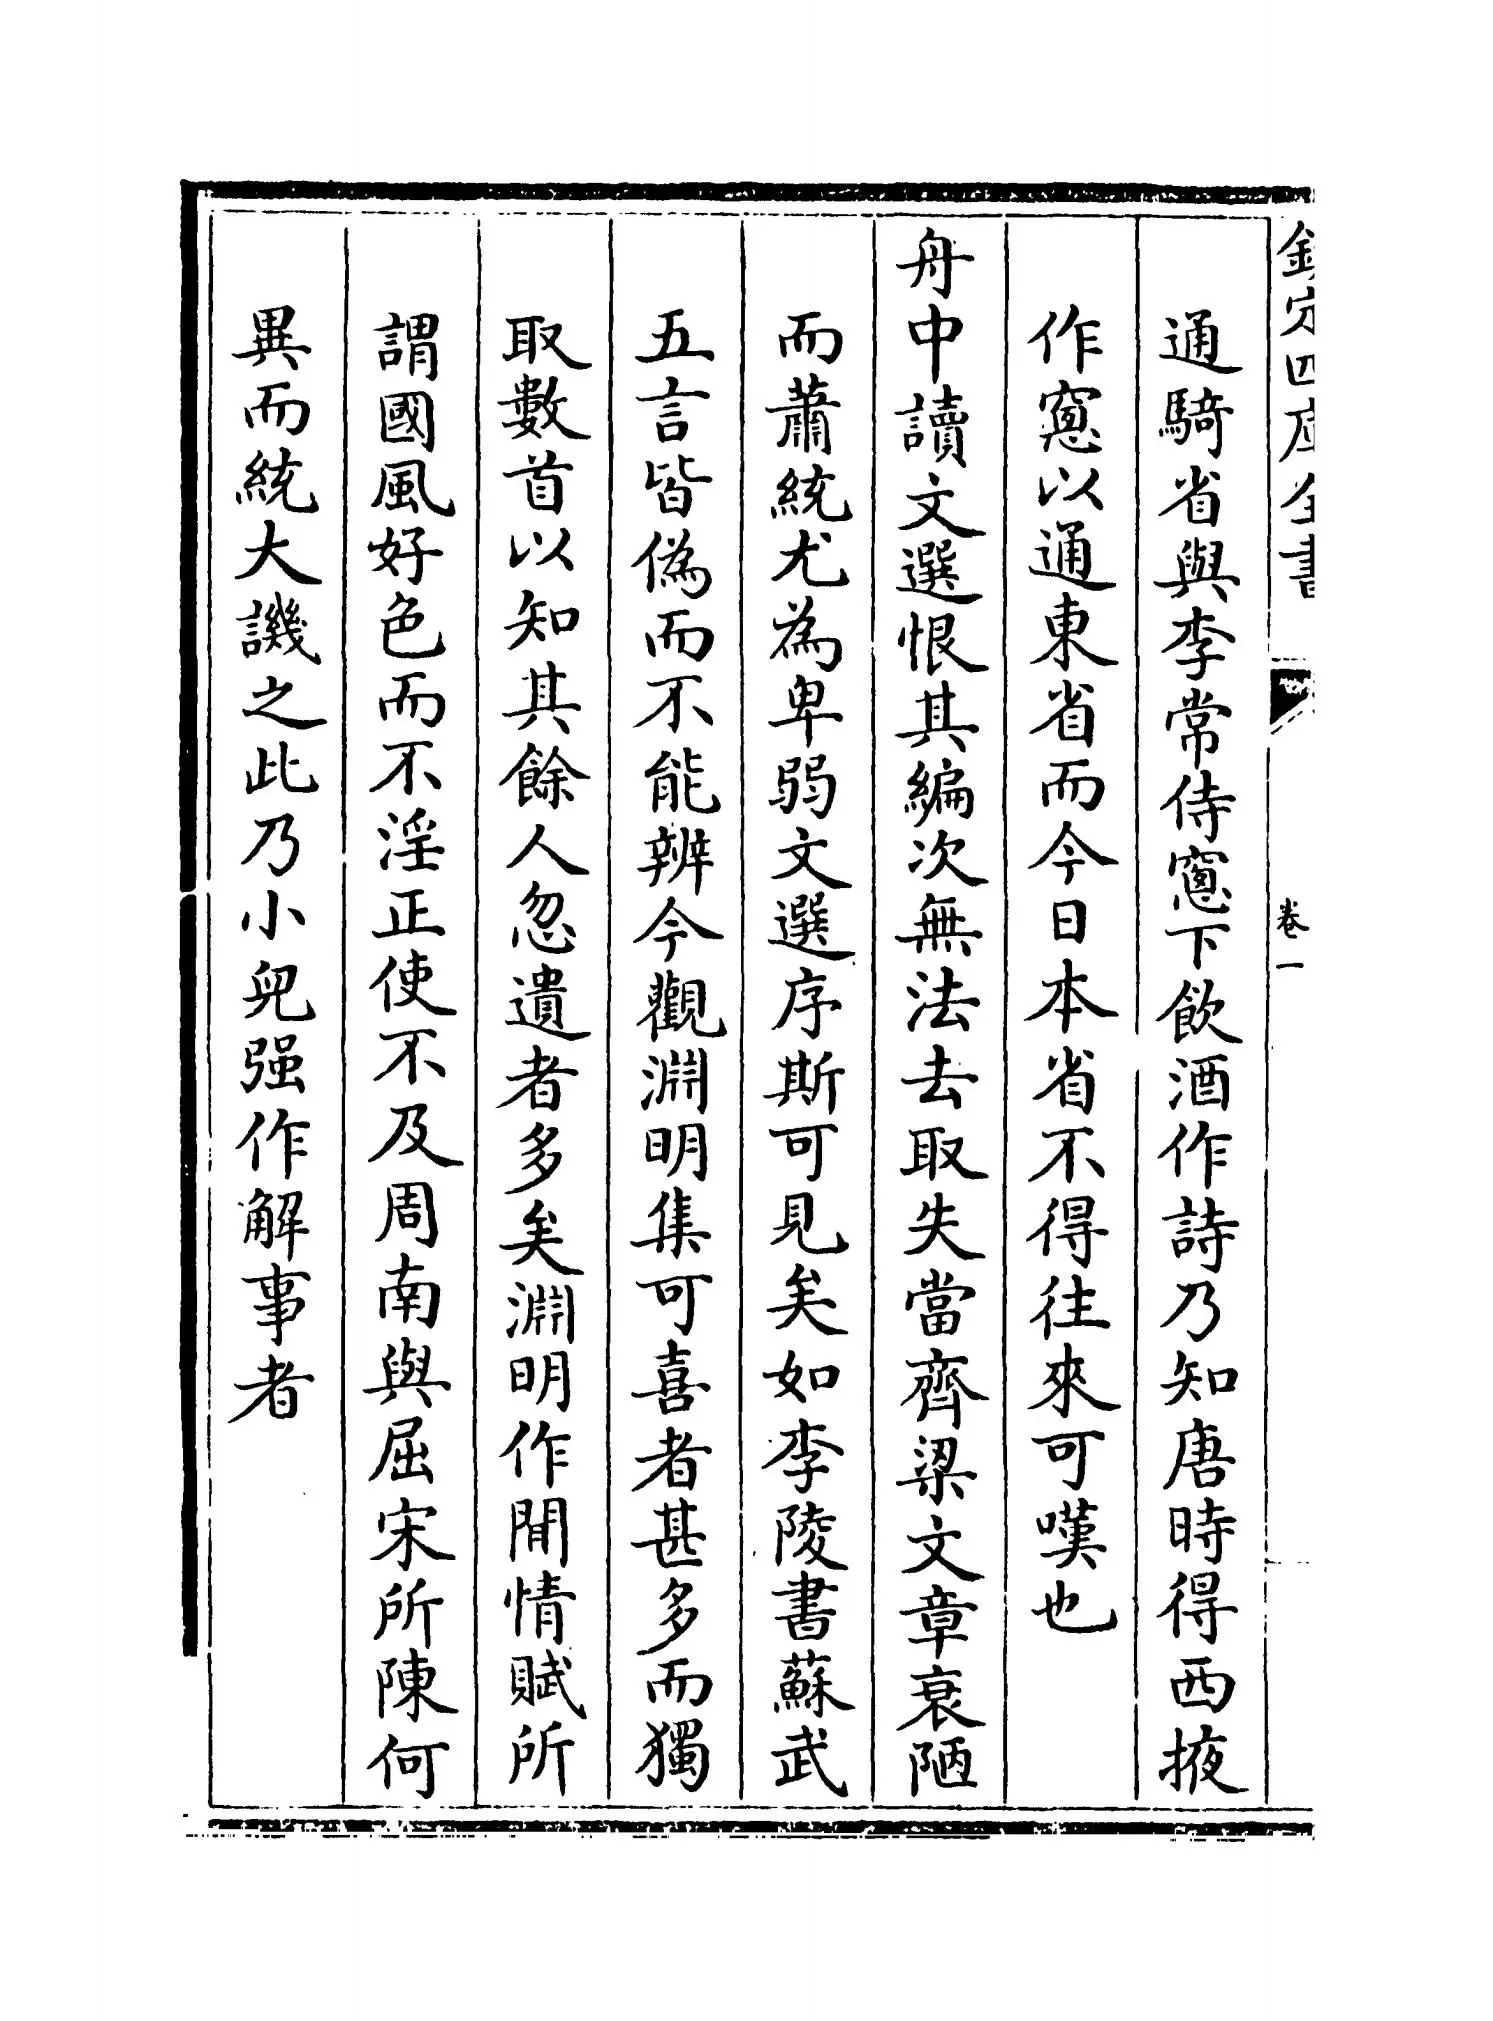 欽定四庫全書
卷一
通騎省與李常侍窻下飲酒作詩乃知唐時得西掖
作窻以通東省而今日本省不得往來可嘆也
舟中讀文選恨其編次無法去取失當齊梁文章衰陋
而蕭統尤為卑弱文選序斯可見矣如李陵書蘇武
五言皆偽而不能辨今觀淵明集可喜者甚多而獨
取數首以知其餘人忽遺者多矣淵明作閒情賦所
謂國風好色而不淫正使不及周南與屈宋所陳何
異而統大譏之此乃小兒强作解事者